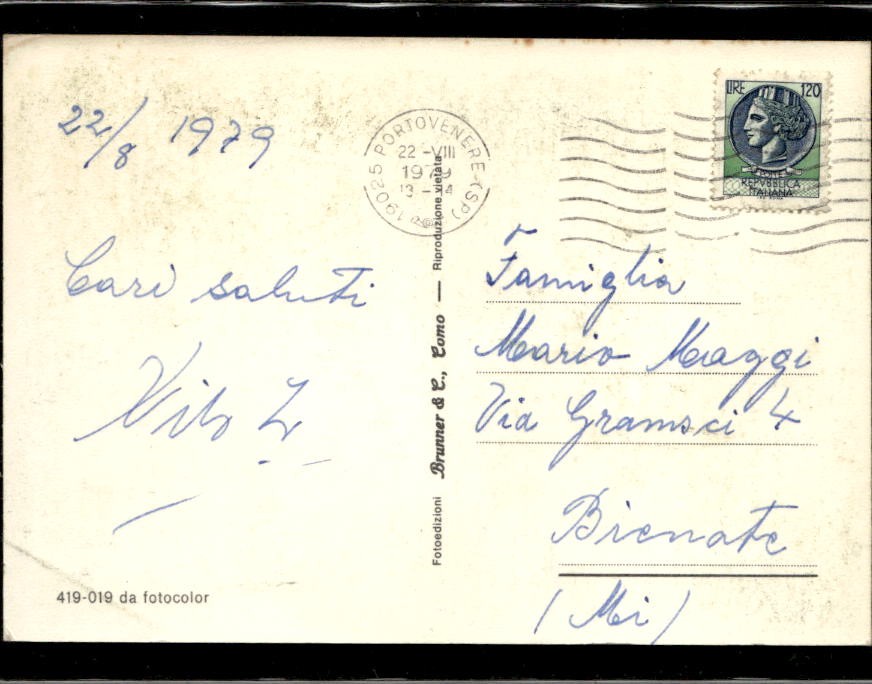 22/8 1979
Cari saluti
Vito L
419-019 da fotocolor
Fotoedizioni Brunner & C., Como — Riproduzione vietata
19025 PORTOVENERE (SP)
22-VIII
1979
13-14
LIRE 120
REPVBBLICA
ITALIANA
Famiglia
Mario Maggi
Via Gramsci 4
Bienate
(Mi)